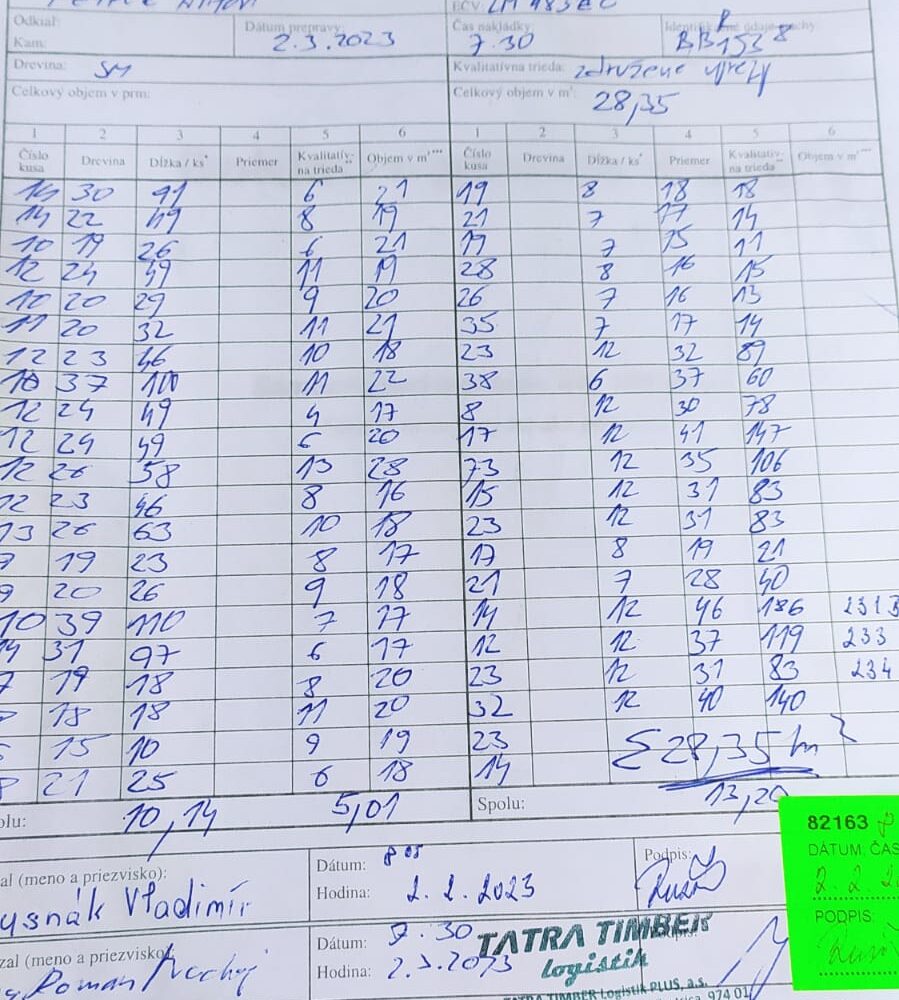 EČV:
Odkiaľ:
Kam:
Dátum prepravy:
2.3.2023
Čas nakládky:
7.30
Drevina: SM
Kvalitatívna trieda: združené výrezy
Celkový objem v prm:
Celkový objem v m³: 28,35
1 2 3 4 5 6 1 2 3 4 5 6
Číslo kusa Drevina Dĺžka / ks* Priemer Kvalitatív- na trieda** Objem v m³*** Číslo kusa Drevina Dĺžka / ks* Priemer Kvalitatív- na trieda** Objem v m³***
30 91 6 21 19 8 18 18
14 22 49 8 19 21 7 17 14
10 19 26 6 21 19 7 15 11
12 24 49 11 19 28 8 16 15
10 20 29 9 20 26 7 16 13
11 20 32 11 21 35 7 17 14
12 23 46 10 18 23 12 32 89
37 100 11 22 38 6 37 60
12 24 49 4 17 8 12 30 78
12 24 49 6 20 17 12 41 147
12 26 58 13 28 73 12 35 106
12 23 46 8 16 15 12 31 83
13 26 63 10 18 23 12 31 83
19 23 8 17 17 8 19 21
9 20 26 9 18 21 7 28 40
10 39 110 7 17 14 12 46 186
14 31 97 6 17 12 12 37 119 233
7 19 18 8 20 23 12 31 83 234
18 18 11 20 32 12 40 140
15 10 9 19 23 Σ 28,35 m
21 25 6 18 14
10,14 5,01 Spolu: 13,20
82163
DÁTUM, ČAS
PODPIS:
(meno a priezvisko):
Vladimír
Dátum: 8 05
Hodina: 2.2.2023
Podpis:
(meno a priezvisko)
Roman
Dátum: 7.30
Hodina: 2.3.2023
TATRA TIMBER
logistik
TATRA TIMBER Logistik PLUS, a.s.
974 01